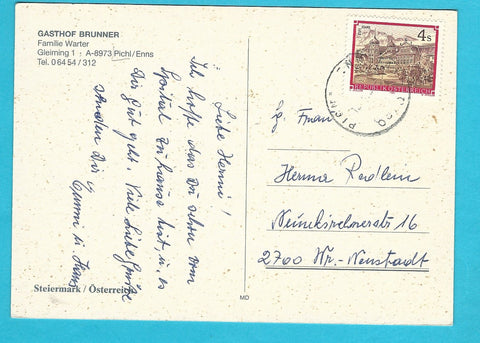 GASTHOF BRUNNER
Familie Warter
Gleiming 1 · A-8973 Pichl/Enns
Tel. 0 64 54 / 312
Liebe Hermi!
Ich hoffe das Du schon vom
Spital zu hause bist, u. es
Dir gut geht. Viele Liebe Grüße
senden Dir
u. Hans
Steiermark / Österreich
MD
4 s
REPUBLIK ÖSTERREICH
PICHL
Frau
Herma
Neunkirchnerstr 16
2700 Wr.-Neustadt